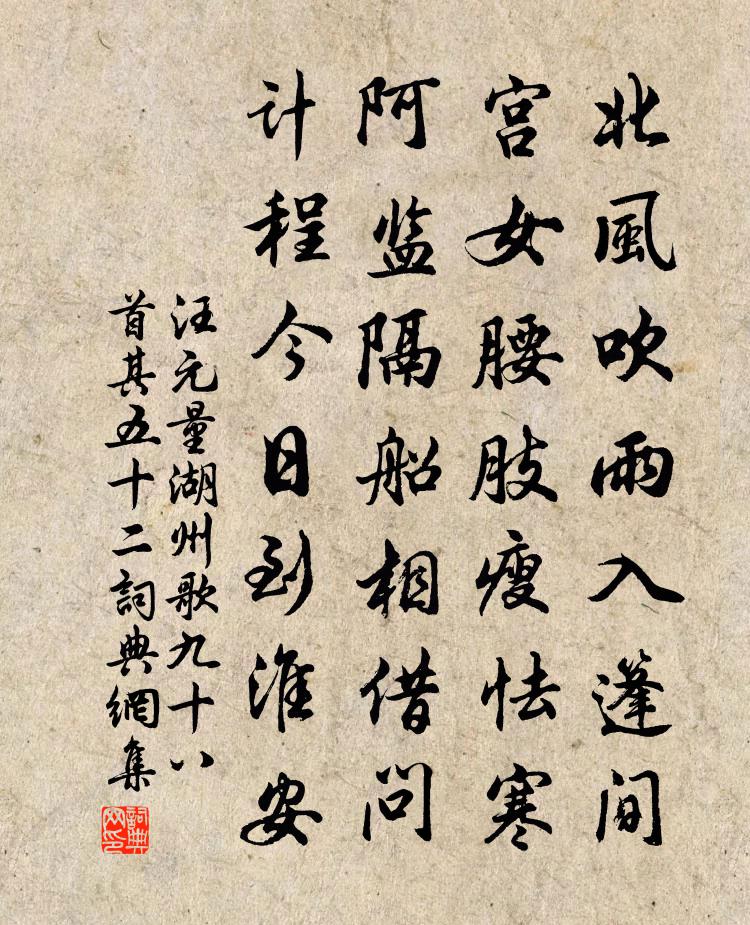 北風吹雨入蓬間
宫女腰肢瘦怯寒
阿监隔船相借问
计程今日到淮安
汪元量湖州歌九十八
首其五十二詞典網集
詞典
网印